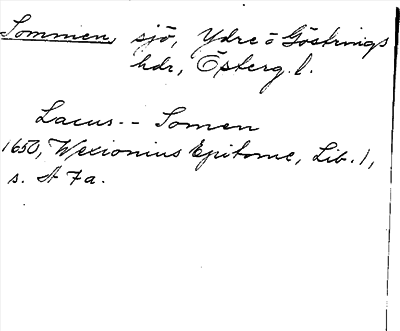 Sommen, sjö, Ydre o Göstrings
hdr, Österg. l.
Lacus -- Somen
1650, Wexionius Epitome, Lib. 1,
s. A 7a.